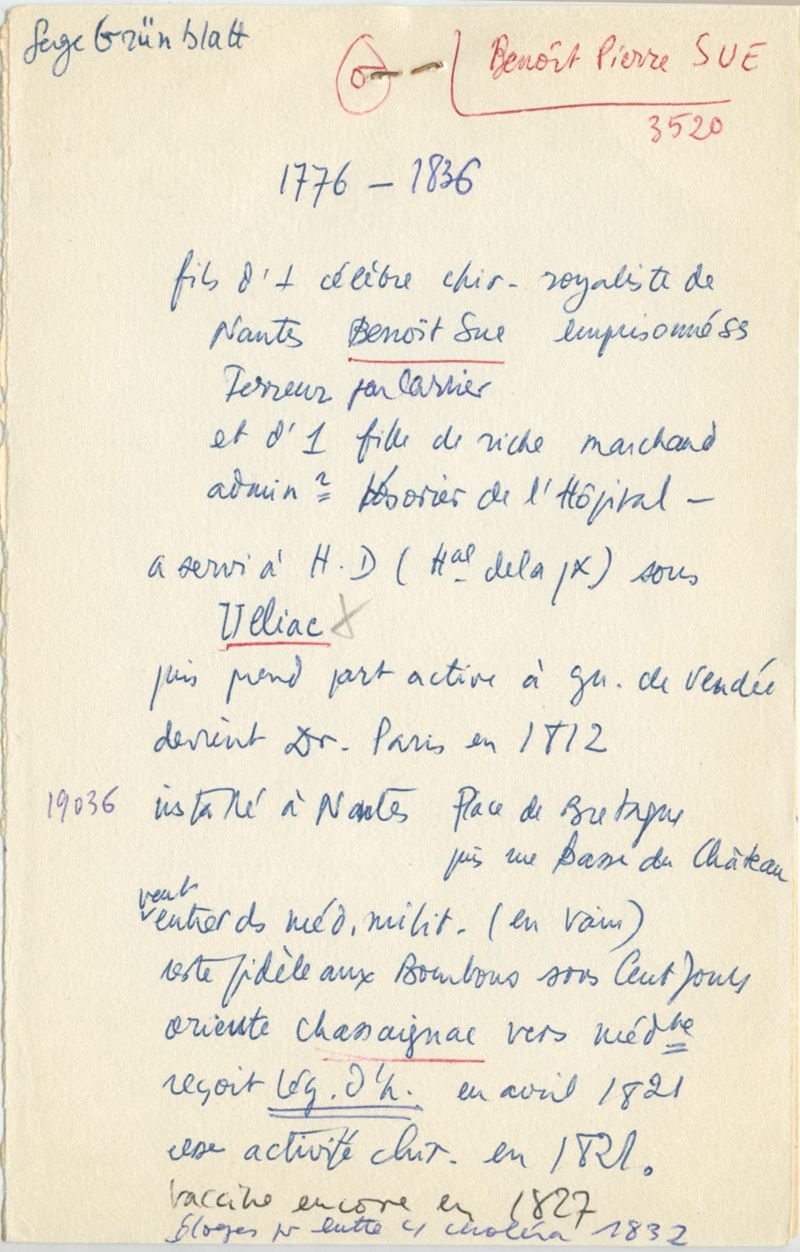 Serge Grünblatt
Benoît Pierre SUE
3520
1776 – 1836
fils d'1 célèbre chir. royaliste de
Nantes Benoît Sue emprisonné ss
Terreur par Carrier
et d'1 fille de riche marchand
admin r trésorier de l'Hôpital –
a servi à H.D (Hal de la px) sous
Uliac
puis prend part active à gu. de Vendée
devient Dr. Paris en 1812
19036 installé à Nantes Place de Bretagne
puis rue Basse du Château
veut
entrer ds méd. milit. (en vain)
reste fidèle aux Bourbons sous Cent Jours
oriente Chassaignac vers médne
reçoit Lég. d'h. en avril 1821
cesse activité chir. en 1821.
Vaccine encore en 1827
Eloges pr lutte c/ choléra 1832